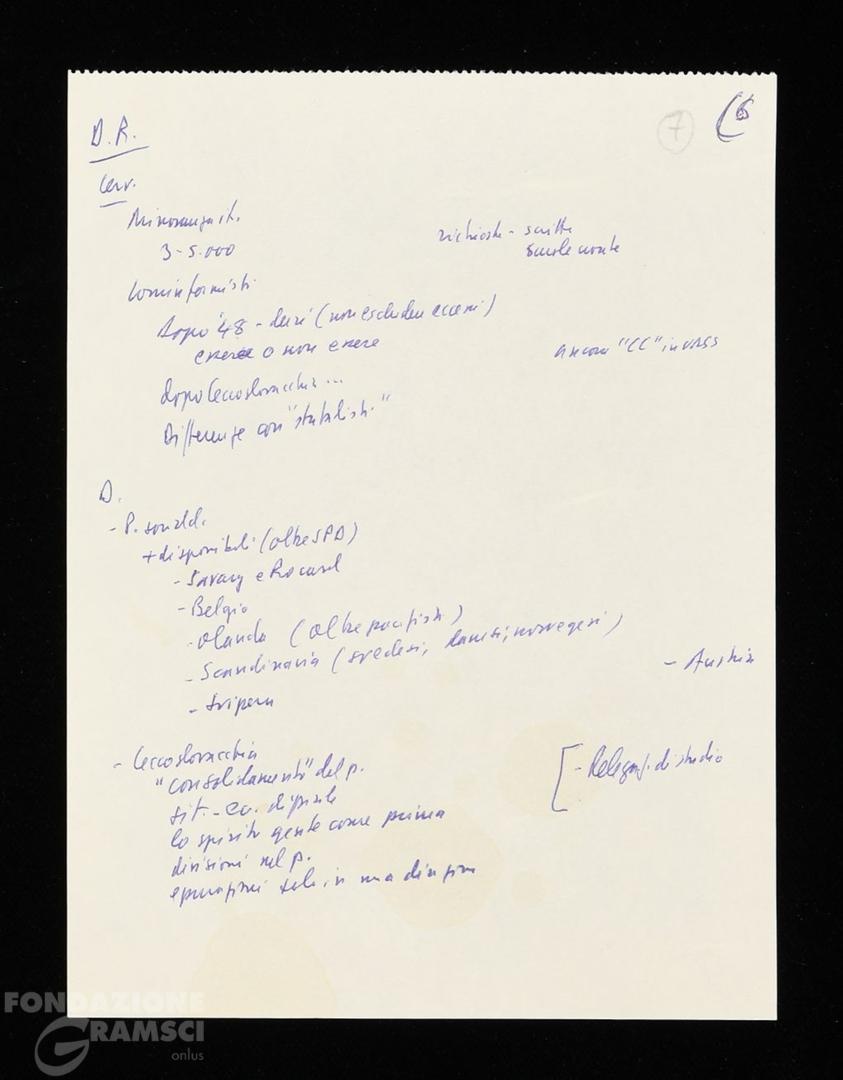 7
6
D.R.
Cerv.
Minoranza it.
3-5.000
richieste - scritte
Cominformisti
Dopo '48 - duri (non escludere eccessi)
essere o non essere
ancora "CC" in URSS
dopo Cecoslovacchia ...
Differenze con "stalinisti"
D.
- P. sociald.
+ disponibili (oltre SPD)
- Savary e Rocard
- Belgio
- Olanda (oltre pacifisti)
- Scandinavia (svedesi, danesi, norvegesi)
- Austria
- Svizzera
- Cecoslovacchia
"consolidamento" del p.
- Delegaz. di studio
sit. - ec. di
lo spirito gente come prima
divisioni nel p.
epurazioni in una direzione
FONDAZIONE
GRAMSCI
onlus